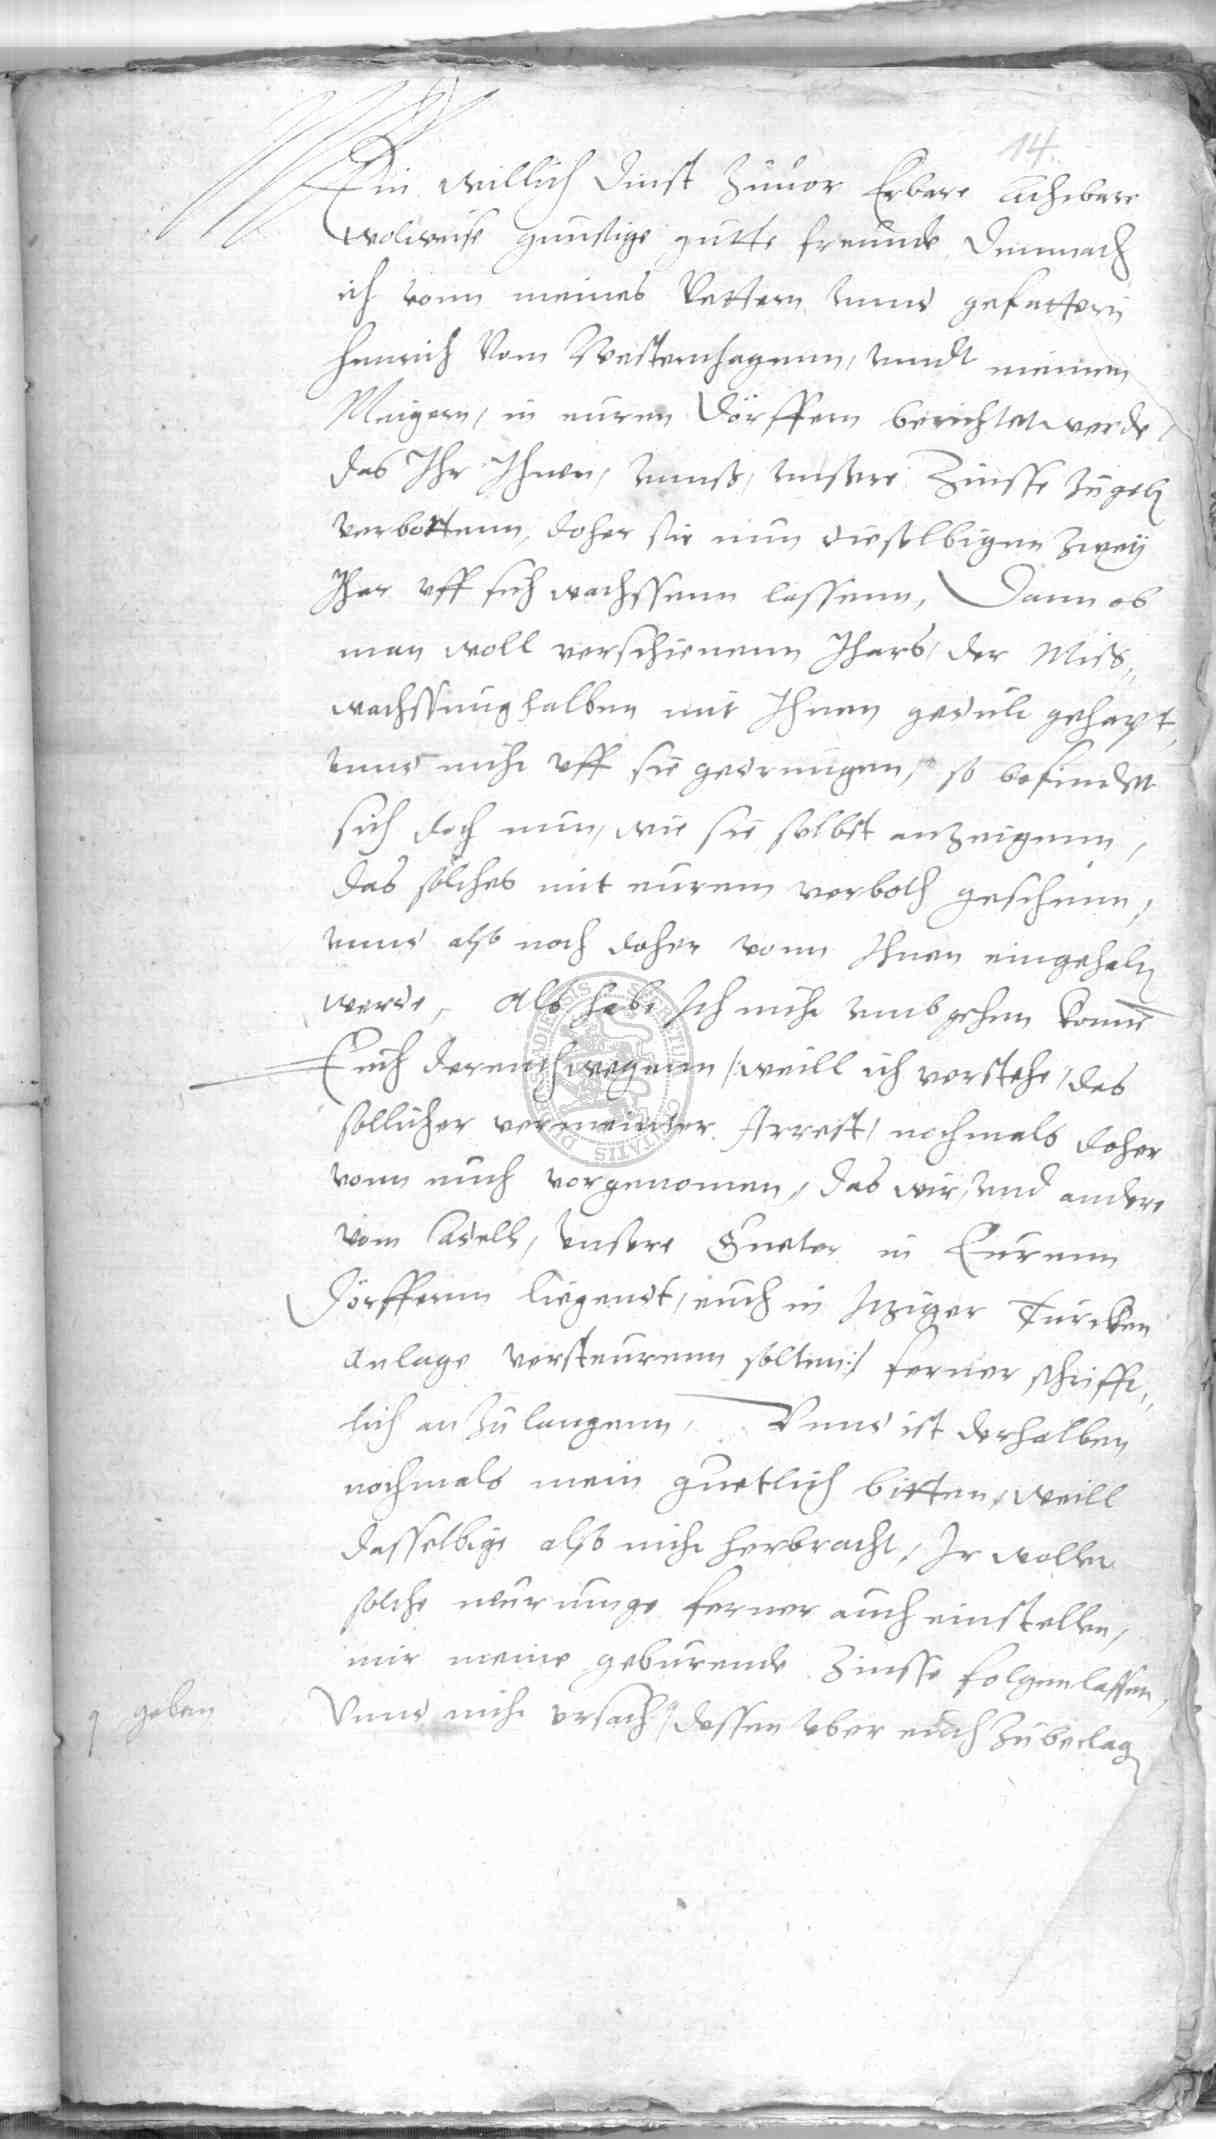 14.
Ein willich dinst zuuor Erbare Achtbare
wolweise gunstige gutte freunde, Demnach
ich vonn meines Vettern vnnd gefattern
Henrich vom Westernhagenn, vnndt meinen
Meigern, in euren Dörffern berichtet werde,
das Ihr Ihnen, vnnß, vnsere Zinsse zugeb
verbottenn, doher sie nun dieselbigen zwey
Ihar vff sich wachssenn lassenn, Dann ob
man woll verschienenn Ihars, der Miß„
wachssung halben mit Ihnen gedult gehapt,
vnnd nicht vff sie gedrungen, so befindet
sich doch nun, wie sie selbst anzeigenn,
das solches mit eurem verboth geschenn,
vnnd also noch doher vonn Ihnen eingehalt
werde, Als habe Ich nicht vmbgehen konne
Euch derentwegenn /: weill ich verstehe, das
sollicher vermeinter Arrest, nochmals doher
vonn euch vorgenomen, das wir, vnd andere
vom Adell, vnsere Gueter in Eurenn
Dörffernn liegendt, euch in Itziger Türcken
Anlage versteurenn solten :/ ferner schrifft„
lich anzulangenn, Vnnd ist derhalben
nochmals mein guetlich bitten, weill
dasselbige also nicht herbracht, Ir wollet
solche neurunge ferner auch einstellen,
mir meine geburende Zinsse folgen lassen,
Vnnd nicht vrsach, dessen vber euch zubeclag
geben
DUDERSTADIENSIS SECRETUM CIVITATIS